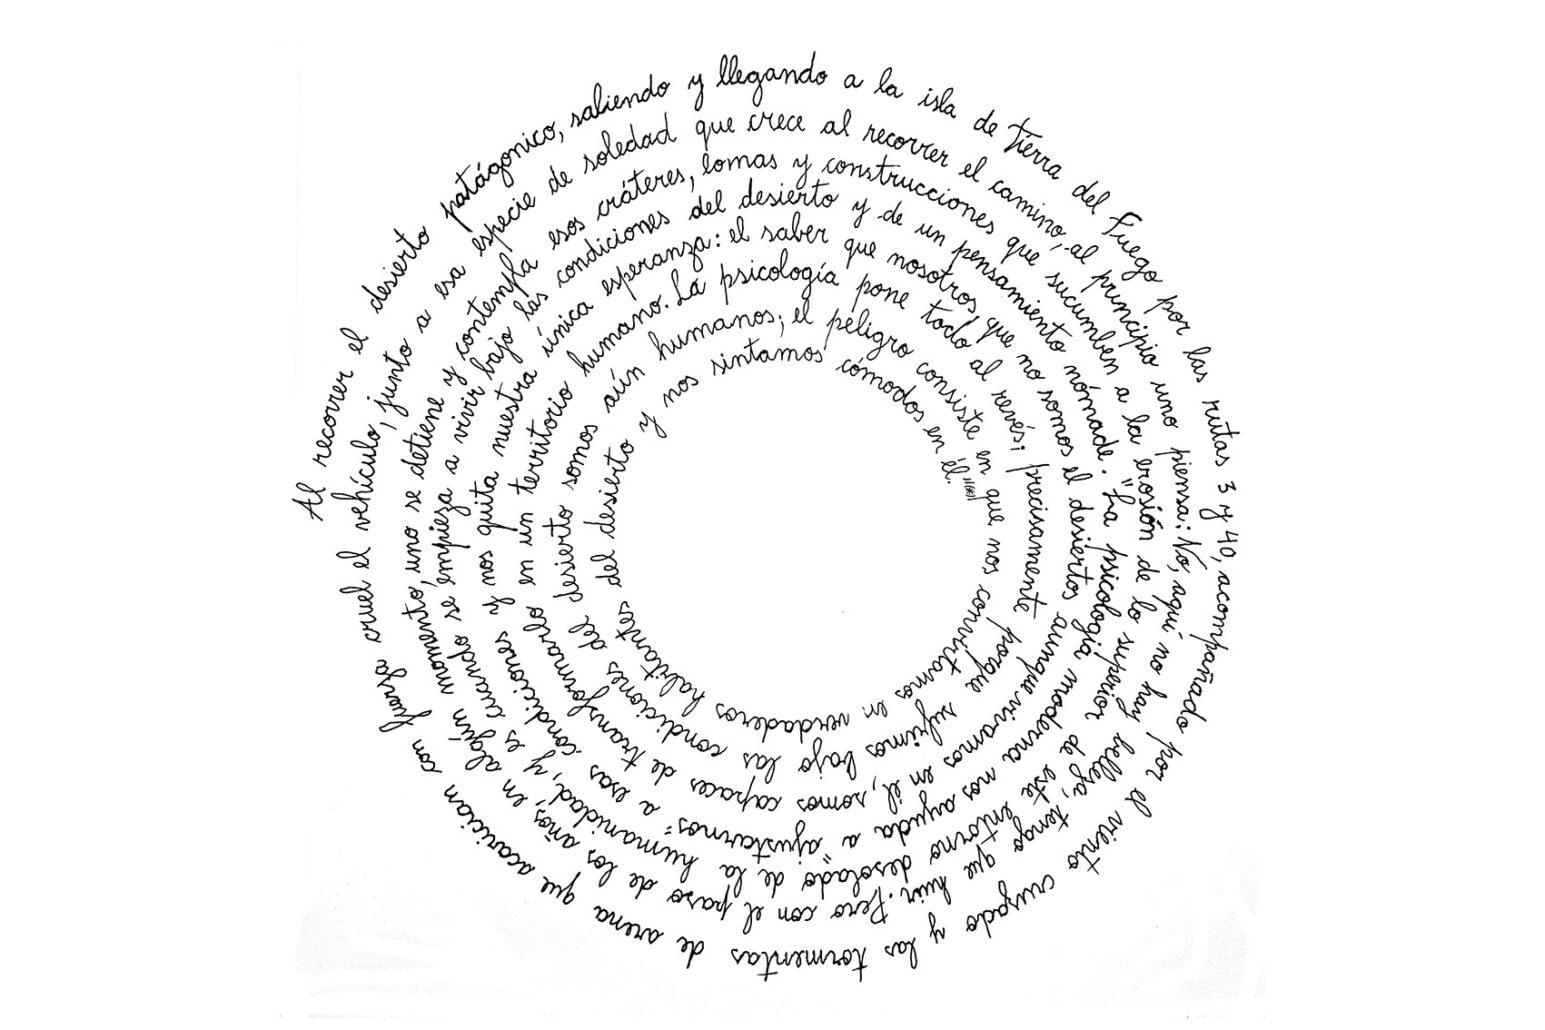 Al recorrer el desierto patágonico, saliendo y llegando a la isla de Tierra del Fuego por las rutas 3 y 40, acompañado por el viento cruzado y las tormentas de arena que acarician con fuerza
cruel el vehículo, junto a esa especie de soledad que crece al recorrer el camino, al principio uno piensa: No, aquí no hay belleza, tengo que huir. Pero con el paso de los años, en algún momento,
uno se detiene y contempla esos cráteres, lomas y construcciones que sucumben a la erosión de lo superior de este entorno desolado de la humanidad, y es cuando
se empieza a vivir bajo las condiciones del desierto y de un pensamiento nómade. "La psicología moderna nos ayuda a "ajustarnos" a esas condiciones
y nos quita nuestra única esperanza: el saber que nosotros, que no somos el desierto, aunque vivamos en él, somos capaces de transformarlo
en un territorio humano. La psicología pone todo al revés; precisamente porque sufrimos bajo las condiciones del
desierto somos aún humanos; el peligro consiste en que nos convirtamos en verdaderos habitantes
del desierto y nos sintamos cómodos en él."